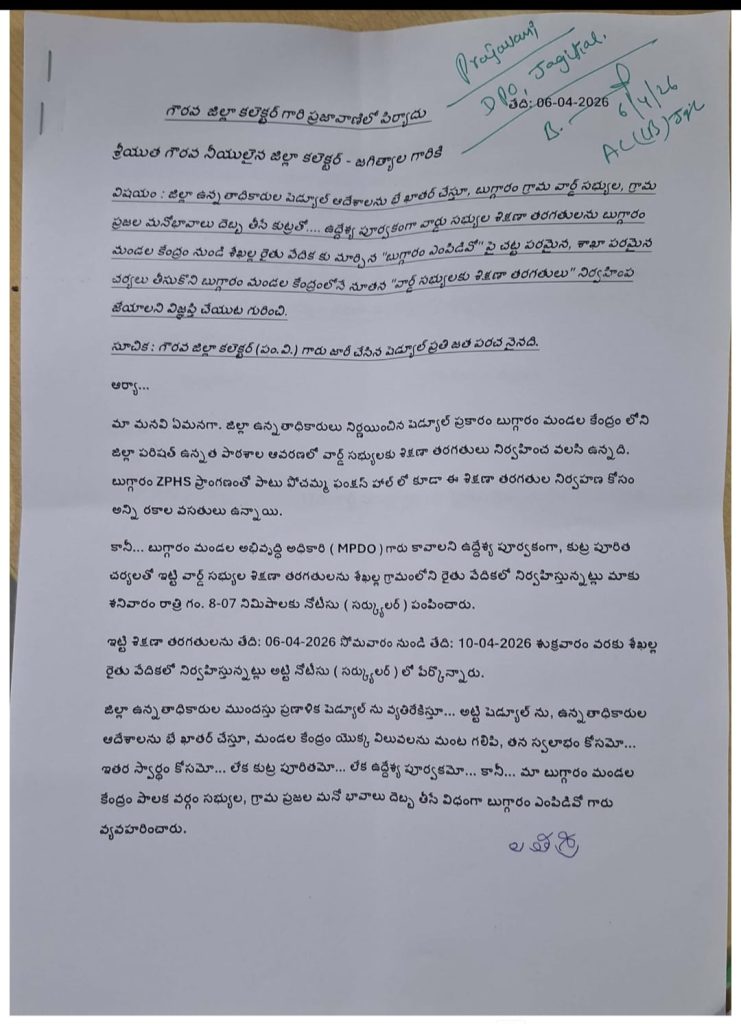 Prajavani
DPO, Jagitial.
తేది: 06-04-2026
B.
6/4/26
AC(LB) Jgtl
గౌరవ జిల్లా కలెక్టర్ గారి ప్రజావాణిలో పిర్యాదు
శ్రీయుత గౌరవ నీయులైన జిల్లా కలెక్టర్ - జగిత్యాల గారికి
విషయం : జిల్లా ఉన్న తాధికారుల షెడ్యూల్ ఆదేశాలను భే ఖాతర్ చేస్తూ, బుగ్గారం గ్రామ వార్డ్ సభ్యుల, గ్రామ
ప్రజల మనోభావాలు దెబ్బ తీసే కుట్రతో.... ఉద్దేశ్య పూర్వకంగా వార్డు సభ్యుల శిక్షణా తరగతులను బుగ్గారం
మండల కేంద్రం నుండి శేఖల్ల రైతు వేదిక కు మార్చిన "బుగ్గారం ఎంపిడివో" పై చట్ట పరమైన, శాఖా పరమైన
చర్యలు తీసుకొని బుగ్గారం మండల కేంద్రంలోనే నూతన "వార్డ్ సభ్యులకు శిక్షణా తరగతులు" నిర్వహింప
జేయాలని విజ్ఞప్తి చేయుట గురించి.
సూచిక : గౌరవ జిల్లా కలెక్టర్ (పం.వి.) గారు జారీ చేసిన షెడ్యూల్ ప్రతి జత పరచ నైనది.
ఆర్యా...
మా మనవి ఏమనగా. జిల్లా ఉన్న తాధికారులు నిర్ణయించిన షెడ్యూల్ ప్రకారం బుగ్గారం మండల కేంద్రం లోని
జిల్లా పరిషత్ ఉన్నత పాఠశాల ఆవరణలో వార్డ్ సభ్యులకు శిక్షణా తరగతులు నిర్వహించ వలసి ఉన్నది.
బుగ్గారం ZPHS ప్రాంగణంతో పాటు పోచమ్మ ఫంక్షన్ హాల్ లో కూడా ఈ శిక్షణా తరగతుల నిర్వహణ కోసం
అన్ని రకాల వసతులు ఉన్నాయి.
కానీ... బుగ్గారం మండల అభివృద్ధి అధికారి ( MPDO ) గారు కావాలని ఉద్దేశ్య పూర్వకంగా, కుట్ర పూరిత
చర్యలతో ఇట్టి వార్డ్ సభ్యుల శిక్షణా తరగతులను శేఖల్ల గ్రామంలోని రైతు వేదికలో నిర్వహిస్తున్నట్లు మాకు
శనివారం రాత్రి గం. 8-07 నిమిషాలకు నోటీసు ( సర్క్యులర్ ) పంపించారు.
ఇట్టి శిక్షణా తరగతులను తేది: 06-04-2026 సోమవారం నుండి తేది: 10-04-2026 శుక్రవారం వరకు శేఖల్ల
రైతు వేదికలో నిర్వహిస్తున్నట్లు అట్టి నోటీసు ( సర్క్యులర్ ) లో పేర్కొన్నారు.
జిల్లా ఉన్న తాధికారుల ముందస్తు ప్రణాళిక షెడ్యూల్ ను వ్యతిరేకిస్తూ... అట్టి షెడ్యూల్ ను, ఉన్న తాధికారుల
ఆదేశాలను భే ఖాతర్ చేస్తూ, మండల కేంద్రం యొక్క విలువలను మంట గలిపి, తన స్వలాభం కోసమో...
ఇతర స్వార్థం కోసమో... లేక కుట్ర పూరితమో... లేక ఉద్దేశ్య పూర్వకమో... కానీ... మా బుగ్గారం మండల
కేంద్రం పాలక వర్గం సభ్యుల, గ్రామ ప్రజల మనో భావాలు దెబ్బ తీసే విధంగా బుగ్గారం ఎంపిడివో గారు
వ్యవహరించారు.